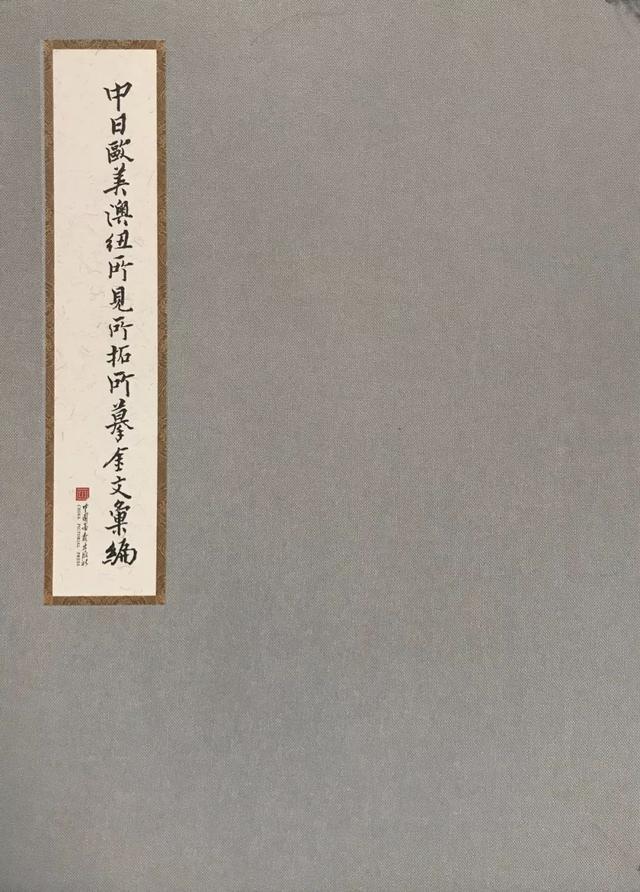 中日歐美澳紐所見所拓所摹金文彙編
中國畫報出版社
CHINA PICTORIAL PRESS